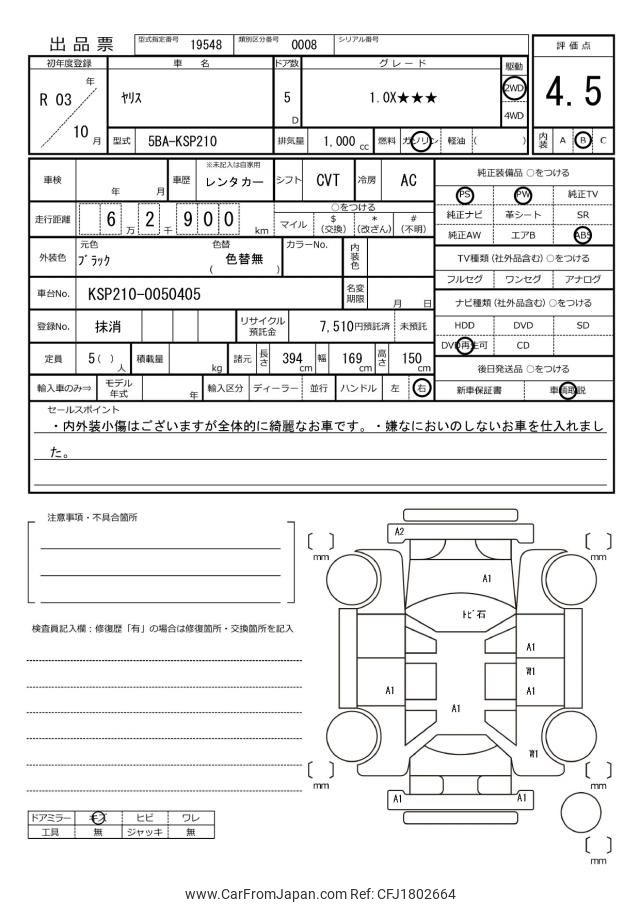 出品票 型式指定番号 19548 類別区分番号 0008 シリアル番号
評価点
4.5
内装 A B C
初年度登録 車名 ドア数 グレード 駆動
R 03 年 10 月 ヤリス 5 D 1.0X★★★ 2WD 4WD
型式 5BA-KSP210 排気量 1,000 cc 燃料 ガソリン 軽油 ( )
車検 年 月 車歴 ※未記入は自家用 レンタカー シフト CVT 冷房 AC
走行距離 6 万 2 千 9 0 0 km
○をつける
マイル $(交換) *(改ざん) #(不明)
外装色 元色 ブラック 色替 ( 色替無 ) カラーNo. 内装色
車台No. KSP210-0050405 名変期限 月 日
登録No. 抹消 リサイクル預託金 7,510円預託済 未預託
定員 5( )人 積載量 kg 諸元 長さ 394 cm 幅 169 cm 高さ 150 cm
輸入車のみ⇒ モデル年式 年 輸入区分 ディーラー 並行 ハンドル 左 右
純正装備品 ○をつける
PS PW 純正TV
純正ナビ 革シート SR
純正AW エアB ABS
TV種類(社外品含む)○をつける
フルセグ ワンセグ アナログ
ナビ種類(社外品含む)○をつける
HDD DVD SD
DVD再生可 CD
後日発送品 ○をつける
新車保証書 車輌取説
セールスポイント
・内外装小傷はございますが全体的に綺麗なお車です。・嫌なにおいのしないお車を仕入れまし
た。
注意事項・不具合箇所
検査員記入欄：修復歴「有」の場合は修復箇所・交換箇所を記入
ドアミラー キズ ヒビ ワレ
工具 無 ジャッキ 無
[ ] mm
[ ] mm
A2
A1
トビ石
A1
W1
A1
A1
A1
W1
[ ] mm
[ ] mm
A1
A1
[ ] mm
www.CarFromJapan.com Ref: CFJ1802664